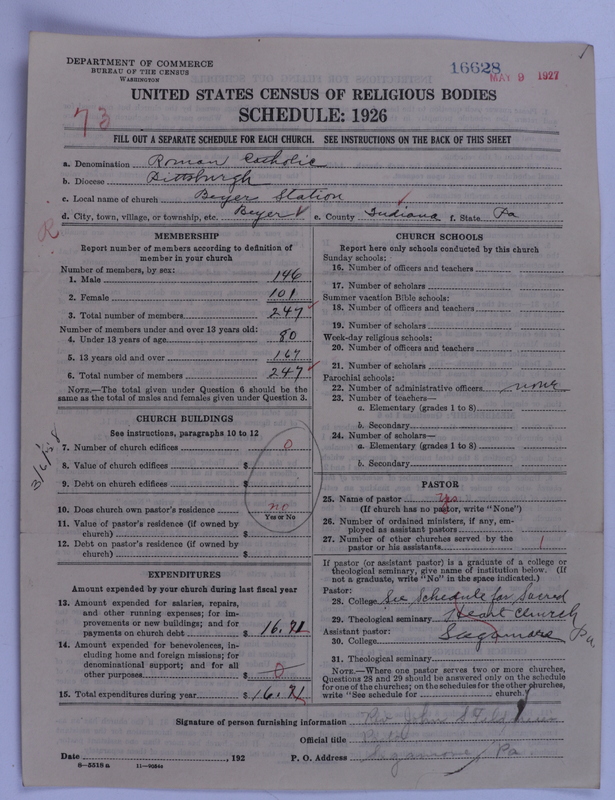 DEPARTMENT OF COMMERCE
BUREAU OF THE CENSUS
WASHINGTON
16628
MAY 9 1927
UNITED STATES CENSUS OF RELIGIOUS BODIES
SCHEDULE: 1926
73
FILL OUT A SEPARATE SCHEDULE FOR EACH CHURCH. SEE INSTRUCTIONS ON THE BACK OF THIS SHEET
a. Denomination Roman Catholic
b. Diocese Pittsburgh
c. Local name of church Beyer Station
d. City, town, village, or township, etc. Beyer e. County Indiana f. State Pa
R
MEMBERSHIP
Report number of members according to definition of
member in your church
Number of members, by sex:
1. Male 146
2. Female 101
3. Total number of members 247
Number of members under and over 13 years old:
4. Under 13 years of age 80
5. 13 years old and over 167
6. Total number of members 247
NOTE.—The total given under Question 6 should be the
same as the total of males and females given under Question 3.
CHURCH BUILDINGS
See instructions, paragraphs 10 to 12
7. Number of church edifices 0
8. Value of church edifices $
9. Debt on church edifices $
10. Does church own pastor's residence no
Yes or No
11. Value of pastor's residence (if owned by
church) $
12. Debt on pastor's residence (if owned by
church) $
EXPENDITURES
Amount expended by your church during last fiscal year
13. Amount expended for salaries, repairs,
and other running expenses; for im-
provements or new buildings; and for
payments on church debt $ 16.71
14. Amount expended for benevolences, in-
cluding home and foreign missions; for
denominational support; and for all
other purposes $ 0
15. Total expenditures during year $ 16.71
CHURCH SCHOOLS
Report here only schools conducted by this church
Sunday schools:
16. Number of officers and teachers
17. Number of scholars
Summer vacation Bible schools:
18. Number of officers and teachers
19. Number of scholars
Week-day religious schools:
20. Number of officers and teachers
21. Number of scholars
Parochial schools:
22. Number of administrative officers none
23. Number of teachers—
a. Elementary (grades 1 to 8)
b. Secondary
24. Number of scholars—
a. Elementary (grades 1 to 8)
b. Secondary
PASTOR
25. Name of pastor Yes
(If church has no pastor, write "None")
26. Number of ordained ministers, if any, em-
ployed as assistant pastors
27. Number of other churches served by the
pastor or his assistants 1
If pastor (or assistant pastor) is a graduate of a college or
theological seminary, give name of institution below. (If
not a graduate, write "No" in the space indicated.)
Pastor:
28. College See Schedule for Sacred
29. Theological seminary Heart Church
Assistant pastor: Sagamore Pa
30. College
31. Theological seminary
NOTE.—Where one pastor serves two or more churches,
Questions 28 and 29 should be answered only on the schedule
for one of the churches; on the schedules for the other churches,
write "See schedule for church."
Signature of person furnishing information Rev. John S
Official title
Date , 192 P. O. Address Sagamore, Pa.
8—5518 a 11—9034a